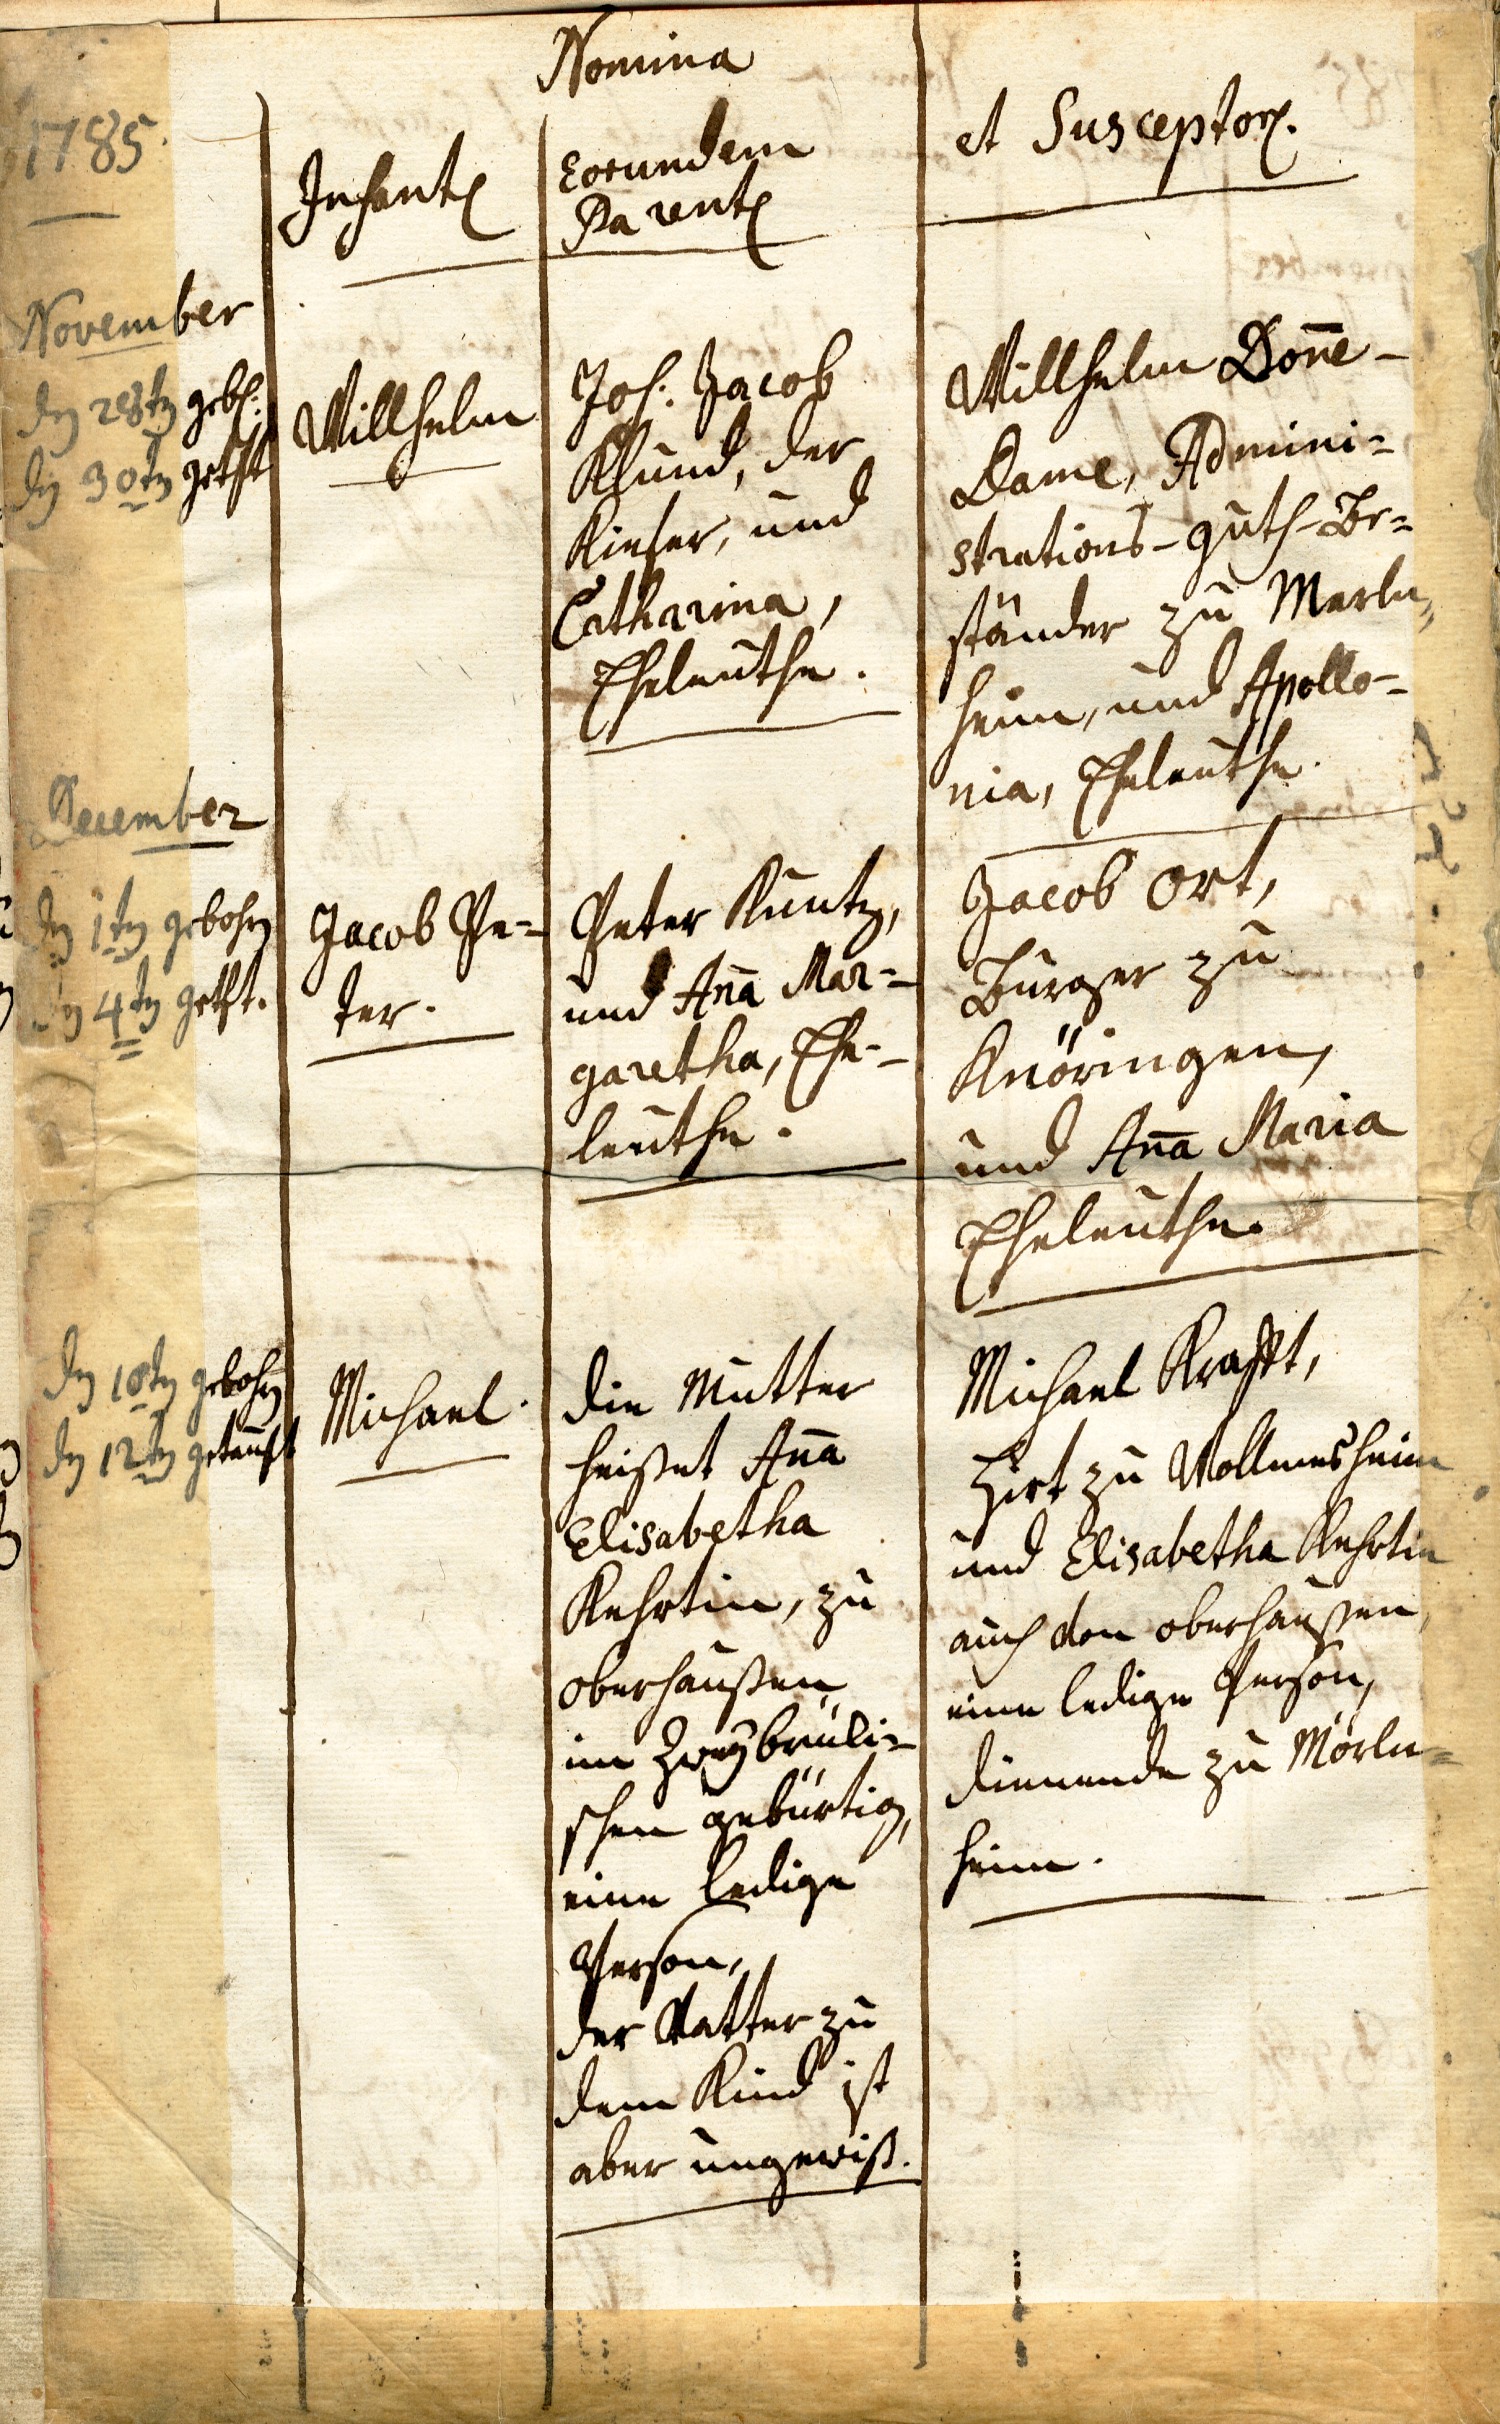 Nomina
1785.
Infant
Eorundem
Parent
et Susceptor.
November
den 28ten geb.
den 30ten getft
Willhelm
Joh. Jacob
Khund, der
Kiefer, und
Catharina,
Eheleuthe.
Willhelm Don̄e-
Dame, Admini=
strations-guth-Be=
ständer zu Merln,
heim, und Apollo-
nia, Eheleuthe.
December
den 1ten gebohren
den 4ten getft.
Jacob Pe=
ter.
Peter Kuntz,
und An̄a Mar=
garetha, Ehe-
leuthe.
Jacob Ort,
Burger zu
Knöringen,
und An̄a Maria
Eheleuthe.
den 10ten gebohren
den 12ten getaufft
Michael.
die Mutter
heißet An̄a
Elisabetha
Kehrtin, zu
oberhaußen
im Zweybrüki=
schen gebürtig,
eine ledige
Person,
der Vatter zu
dem Kind ist
aber ungewiß.
Michael Krafft,
Hirt zu Wollmesheim
und Elisabetha Kehrtin
auch von oberhaußen,
eine ledige Person,
dienende zu Mörln=
heim.